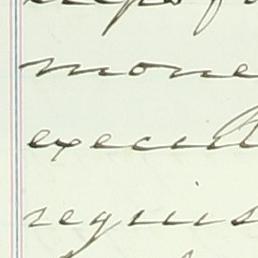 mone
execut
requis